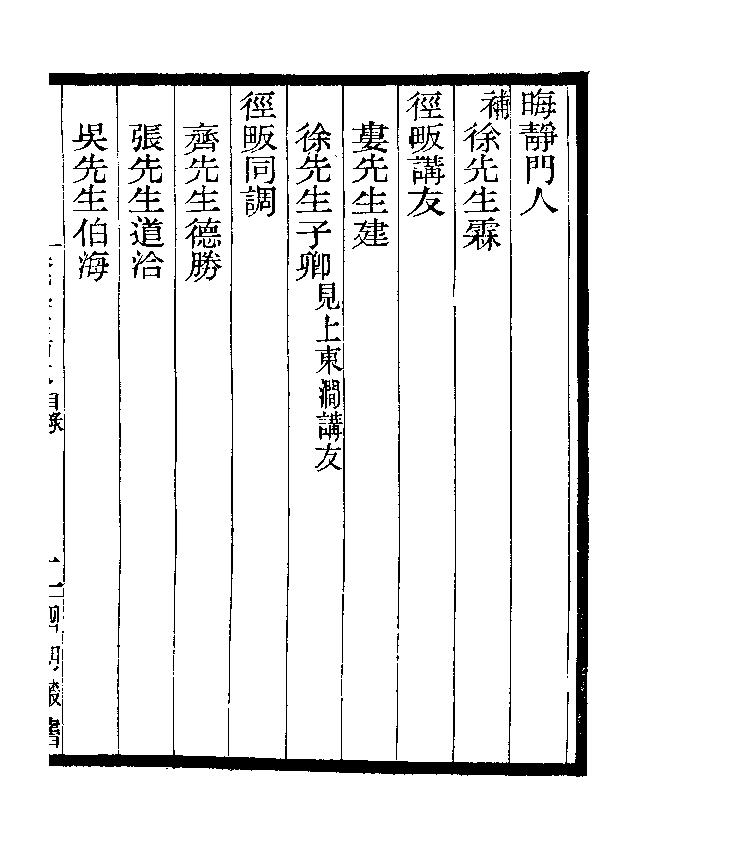 晦靜門人
補徐先生霖
徑畈講友
婁先生建
徐先生子卿見上東澗講友
徑畈同調
齊先生德勝
張先生道洽
吳先生伯海
目錄
四明叢書